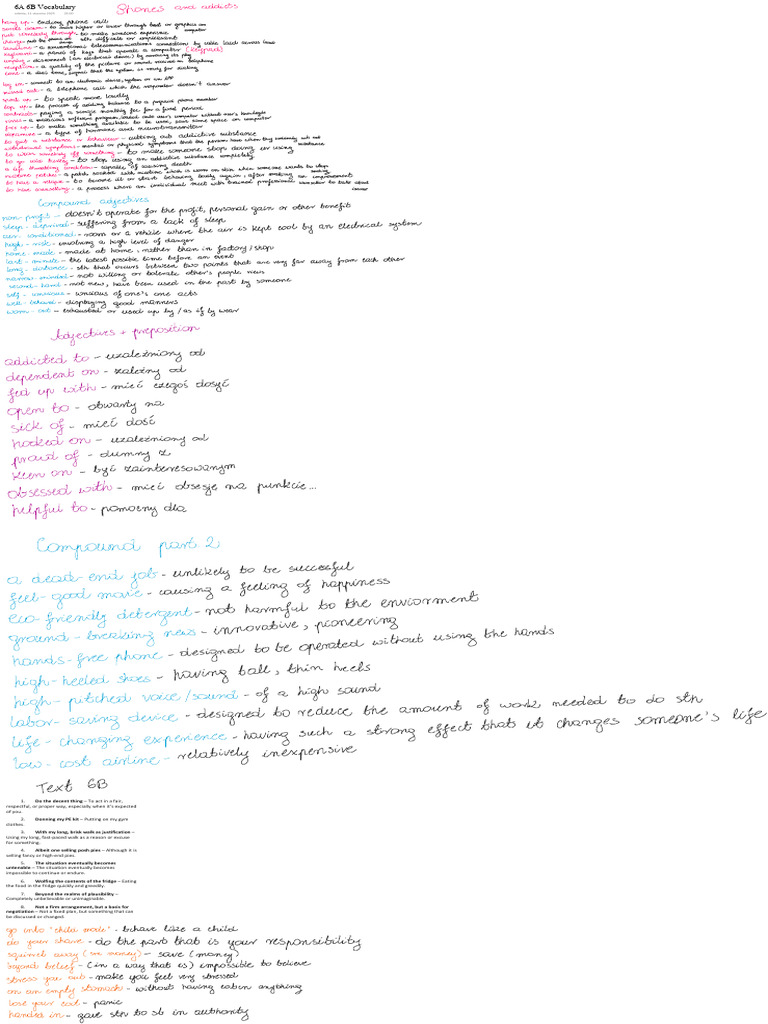 6A 6B Vocabulary
Phones and addicts
hang up - ending phone call
scroll down - to move higher or lower through text or graphics on computer
put somebody through - to make someone experience
sth difficult or unpleasant
landline - a conventional telecommunications connection by cable laid across land
keyboard - a panel of keys that operate a computer (keypad)
unplug - disconnect (an electrical device) by removing its plug
reception - a quality of the picture or sound received on telephone
log on - connect to an electronic device, system or an app
missed call - a telephone call which the responder doesn't answer
speak up - to speak more loudly
top up - the process of adding balance to a prepaid phone number
contract - paying a single monthly fee for a fixed period
virus - a malicious software program loaded onto user's computer without user's knowledge
free up - to make something available to be used, save some space on computer
dopamine - a type of hormone and neurotransmitter
to quit a substance or behaviour - cutting out addictive substance
withdrawal symptoms - mental or physical symptoms that the persons have when they suddenly cut out substance
to wean somebody off something - to make someone stop doing or using
to go cold turkey - to stop using an addictive substance completely
a life threatening condition - capable of causing death
nicotine patches - a patch soaked with nicotine which is worn on skin when someone wants to stop smoking
to have a relapse - to become ill or start behaving badly again, after making an improvement
to have counselling - a process where an individual meet with trained professional counselor to talk about
Compound adjectives
non-profit - doesn't operate for the profit, personal gain or other benefit
sleep-deprived - suffering from a lack of sleep
air-conditioned - room or a vehicle where the air is kept cool by an electrical system
high-risk - involving a high level of danger
home-made - made at home, rather than in factory/shop
last-minute - the latest possible time before an event
long-distance - sth that occurs between two points that are very far away from each other
narrow-minded - not willing or tolerate other's people views
second-hand - not new, have been used in the past by someone
self-conscious - conscious of one's one acts
well-behaved - displaying good manners
worn-out - exhausted or used up by/as if by wear
Adjectives + preposition
addicted to - uzależniony od
dependent on - zależny od
fed up with - mieć czegoś dosyć
open to - otwarty na
sick of - mieć dość
hooked on - uzależniony od
proud of - dumny z
keen on - być zainteresowanym
obsessed with - mieć obsesje na punkcie...
helpful to - pomocny dla
Compound part 2
a dead-end job - unlikely to be succesful
feel-good movie - causing a feeling of happiness
eco-friendly detergent - not harmful to the enviorment
ground-breaking news - innovative, pioneering
hands-free phone - designed to be operated without using the hands
high-heeled shoes - having tall, thin heels
high-pitched voice/sound - of a high sound
labor-saving device - designed to reduce the amount of work needed to do sth
life-changing experience - having such a strong effect that it changes someone's life
low-cost airline - relatively inexpensive
Text 6B
1. Do the decent thing – To act in a fair,
respectful, or proper way, especially when it's expected
of you.
2. Donning my PE kit – Putting on my gym
clothes.
3. With my long, brisk walk as justification –
Using my long, fast-paced walk as a reason or excuse
for something.
4. Albeit one selling posh pies – Although it is
selling fancy or high-end pies.
5. The situation eventually becomes
untenable – The situation eventually becomes
impossible to continue or endure.
6. Wolfing the contents of the fridge – Eating
the food in the fridge quickly and greedily.
7. Beyond the realms of plausibility –
Completely unbelievable or unimaginable.
8. Not a firm arrangement, but a basis for
negotiation – Not a fixed plan, but something that can
be discussed or changed.
go into 'child mode' - behave like a child
do your share - do the part that is your responsibility
squirrel away (on money) - save (money)
beyond belief - (in a way that is) impossible to believe
stress you out - make you feel very stressed
on an empty stomach - without having eaten anything
lose your cool - panic
handed in - gave sth to sb in authority